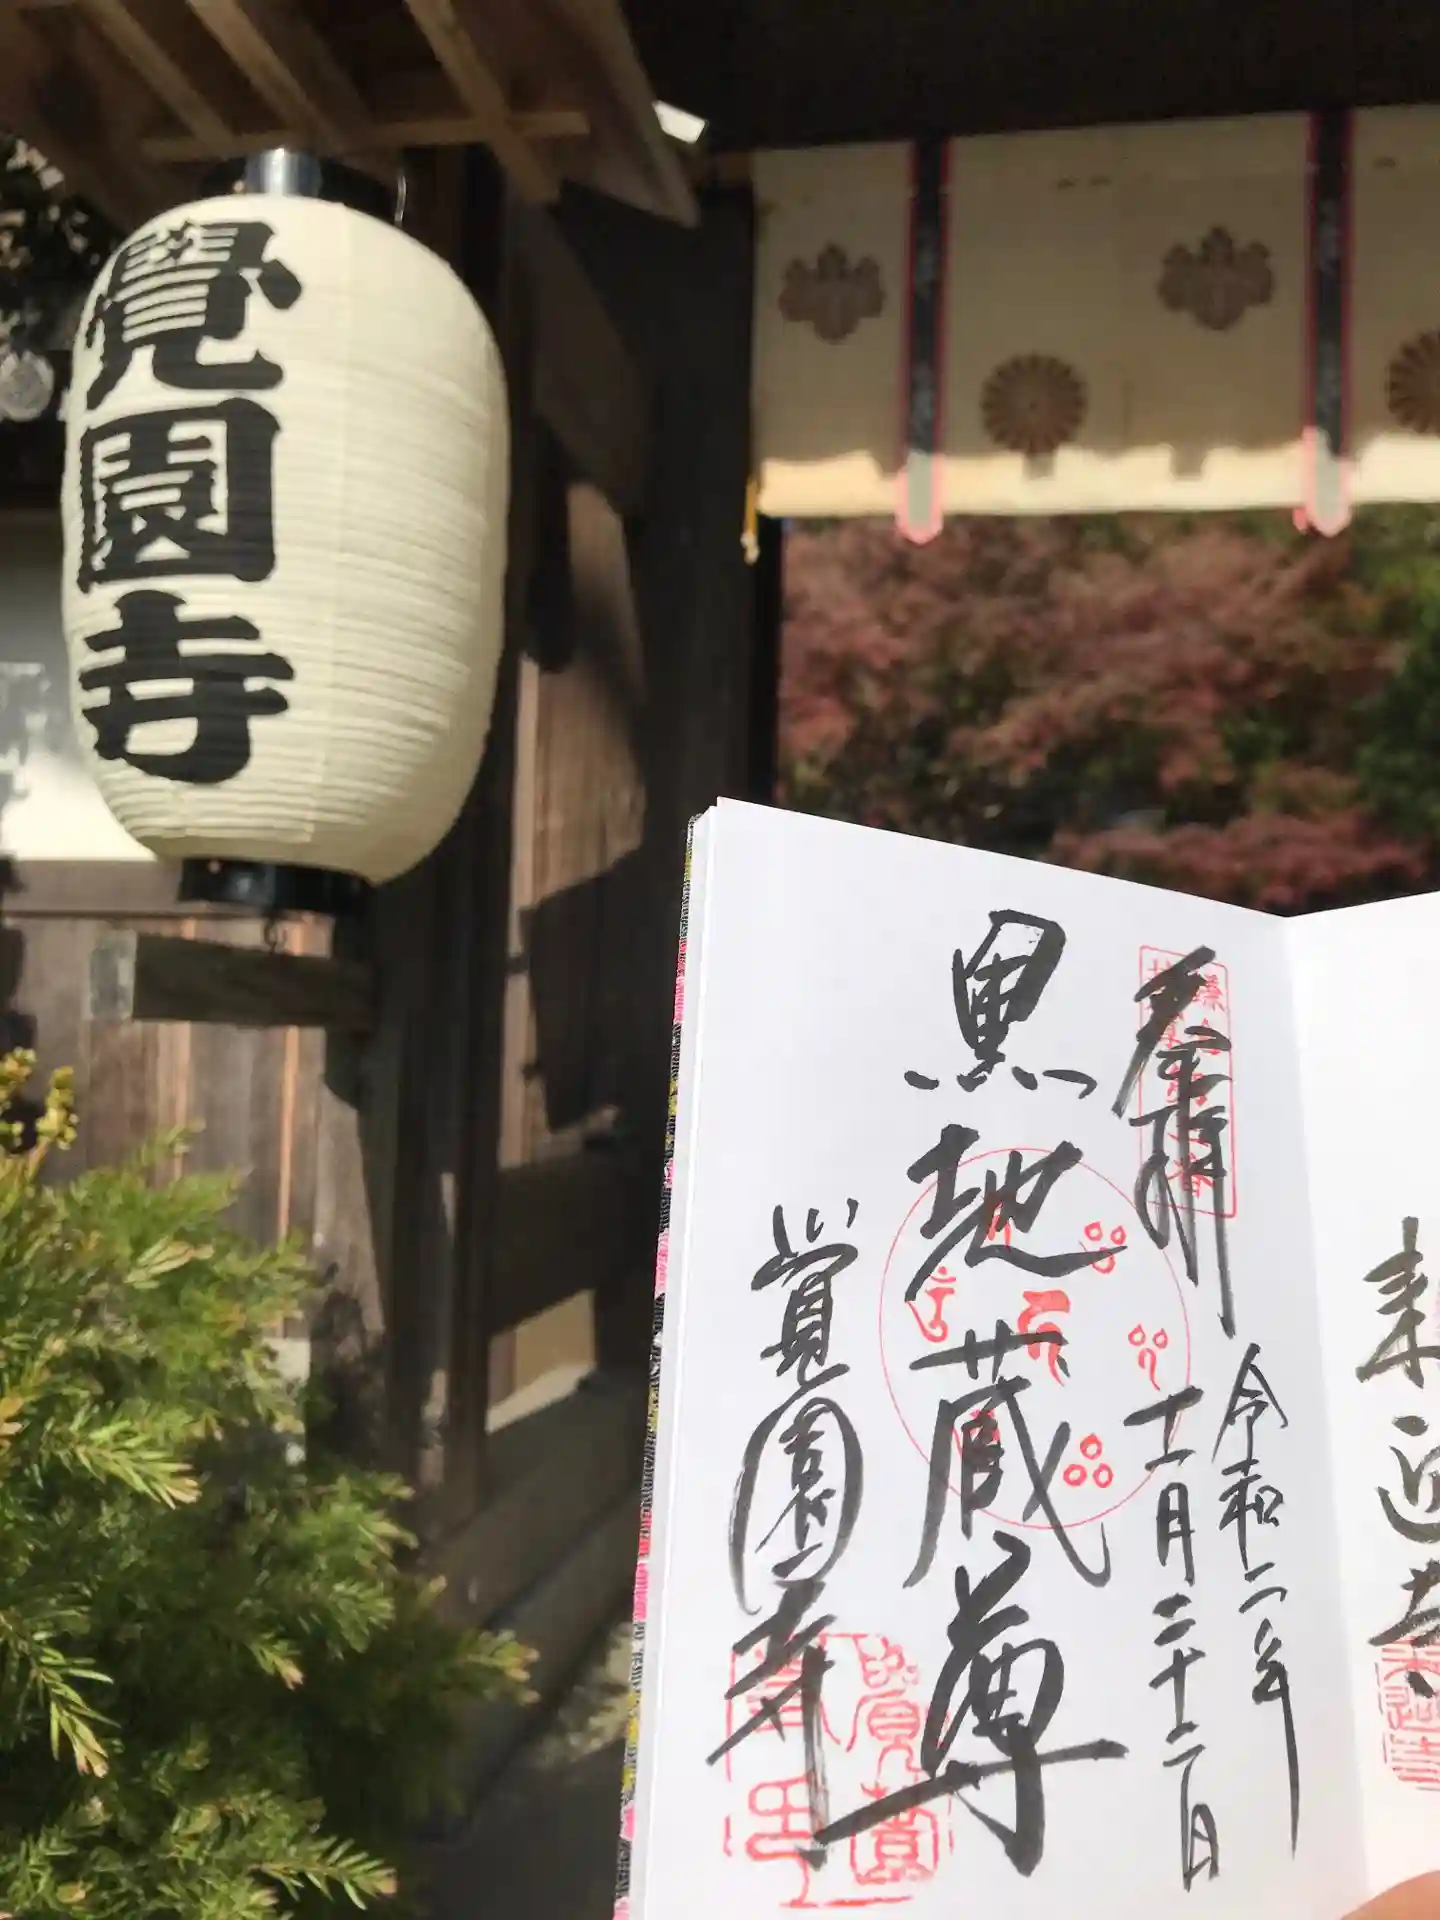 覺園寺
奉拝
令和二年
十一月二十二日
黒地蔵尊
覚園寺
来迎寺